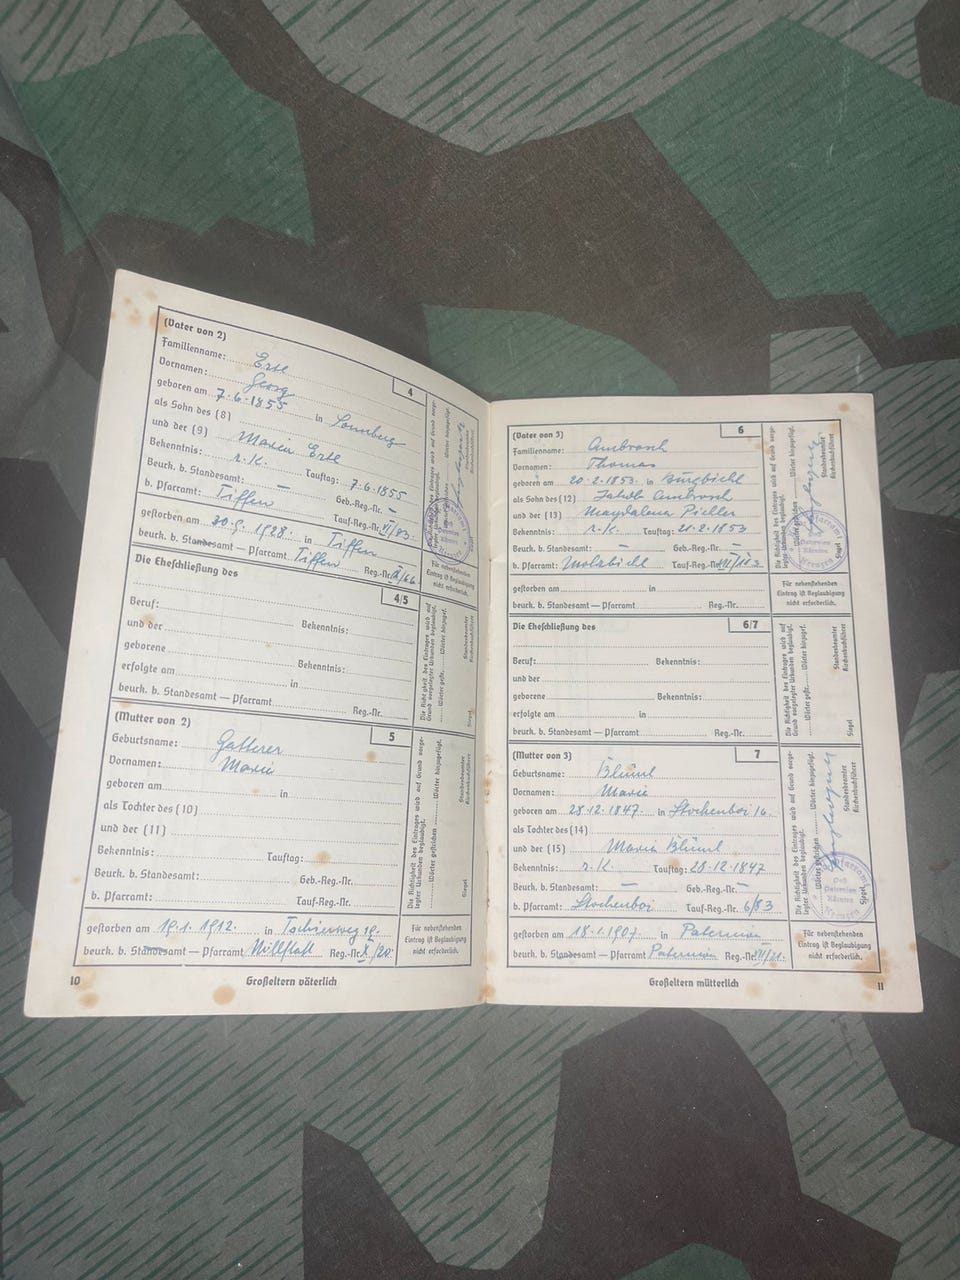 (Vater von 2)
4
Familienname: Ertl
Vornamen: Georg
geboren am 7.6.1855 in Sonnberg
als Sohn des (8)
und der (9) Maria Ertl
Bekenntnis: r.K. Tauftag: 7.6.1855
Beurk. b. Standesamt: — Geb.-Reg.-Nr. —
b. Pfarramt: Tiffen Tauf-Reg.-Nr.
gestorben am 30.9.1928. in Tiffen
beurk. b. Standesamt — Pfarramt Tiffen Reg.-Nr.
Die Richtigkeit des Eintrages wird auf Grund vorge-
legter Urkunden beglaubigt.
Wörter gestrichen Wörter hinzugefügt.
Standesbeamter
Kirchenbuchführer
Für nebenstehenden
Eintrag ist Beglaubigung
nicht erforderlich.
Die Eheschließung des
4/5
Beruf: Bekenntnis:
und der
geborene Bekenntnis:
erfolgte am in
beurk. b. Standesamt — Pfarramt Reg.-Nr.
Die Richtigkeit des Eintrages wird auf
Grund vorgelegter Urkunden beglaubigt.
Wörter gestr. Wörter hinzugef.
Standesbeamter
Kirchenbuchführer
Siegel
(Mutter von 2)
5
Geburtsname: Gatterer
Vornamen: Maria
geboren am in
als Tochter des (10)
und der (11)
Bekenntnis: Tauftag:
Beurk. b. Standesamt: Geb.-Reg.-Nr.
b. Pfarramt: Tauf-Reg.-Nr.
gestorben am 19.1.1912. in
beurk. b. Standesamt — Pfarramt Millstatt Reg.-Nr. X/20
Die Richtigkeit des Eintrages wird auf Grund vorge-
legter Urkunden beglaubigt.
Wörter gestrichen Wörter hinzugefügt.
Standesbeamter
Kirchenbuchführer
Siegel
Für nebenstehenden
Eintrag ist Beglaubigung
nicht erforderlich.
10
Großeltern väterlich
(Vater von 3)
6
Familienname: Ambrosch
Vornamen: Thomas
geboren am 20.2.1853. in
als Sohn des (12) Jakob Ambrosch
und der (13) Magdalena Pichler
Bekenntnis: r.K. Tauftag: 21.2.1853
Beurk. b. Standesamt: — Geb.-Reg.-Nr. —
b. Pfarramt: Molzbichl Tauf-Reg.-Nr.
gestorben am in
beurk. b. Standesamt — Pfarramt Reg.-Nr.
Die Richtigkeit des Eintrages wird auf Grund vorge-
legter Urkunden beglaubigt.
Wörter gestrichen Wörter hinzugefügt.
Standesbeamter
Kirchenbuchführer
Siegel
Für nebenstehenden
Eintrag ist Beglaubigung
nicht erforderlich.
Die Eheschließung des
6/7
Beruf: Bekenntnis:
und der
geborene Bekenntnis:
erfolgte am in
beurk. b. Standesamt — Pfarramt Reg.-Nr.
Die Richtigkeit des Eintrages wird auf
Grund vorgelegter Urkunden beglaubigt.
Wörter gestr. Wörter hinzugef.
Standesbeamter
Kirchenbuchführer
Siegel
(Mutter von 3)
7
Geburtsname: Blüml
Vornamen: Maria
geboren am 28.12.1847. in Stockenboi 16.
als Tochter des (14)
und der (15) Maria Blüml
Bekenntnis: r.K. Tauftag: 28.12.1847
Beurk. b. Standesamt: — Geb.-Reg.-Nr. —
b. Pfarramt: Stockenboi Tauf-Reg.-Nr. 6/83
gestorben am 18.1.1907. in Paternion
beurk. b. Standesamt — Pfarramt Paternion Reg.-Nr.
Die Richtigkeit des Eintrages wird auf Grund vorge-
legter Urkunden beglaubigt.
Wörter gestrichen Wörter hinzugefügt.
Standesbeamter
Kirchenbuchführer
Siegel
Pfarramt
Kärnten
Für nebenstehenden
Eintrag ist Beglaubigung
nicht erforderlich.
Großeltern mütterlich
11